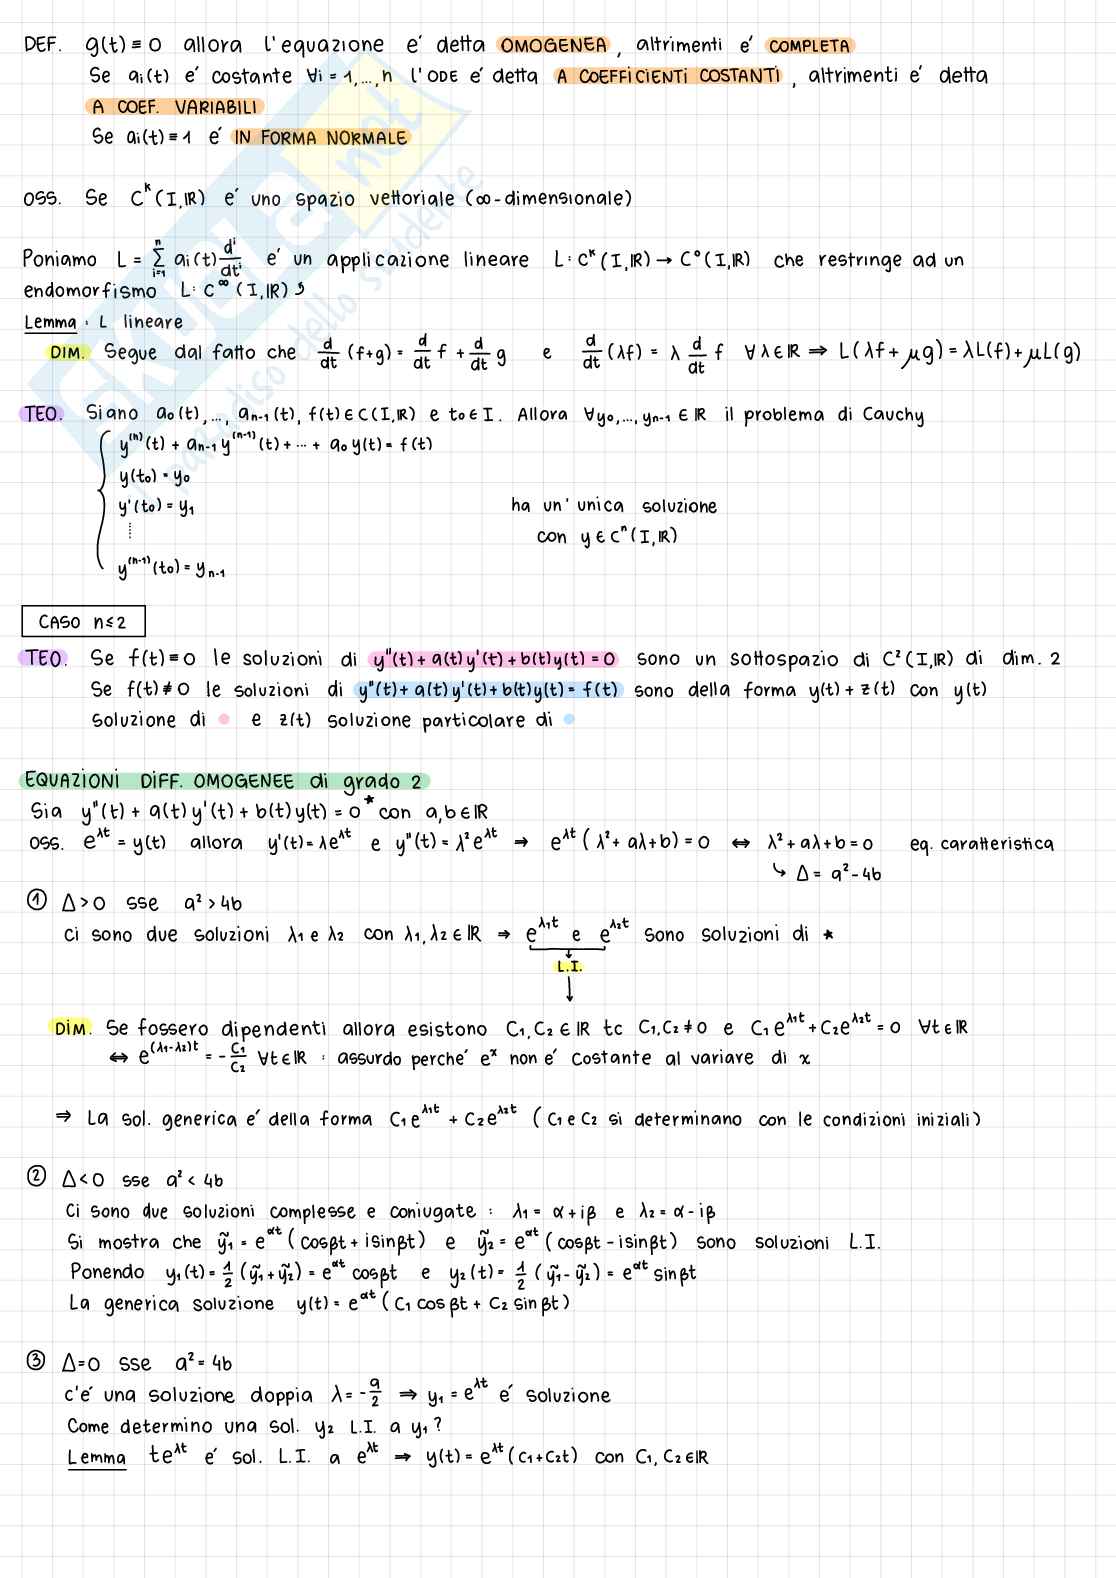 DEF. g(t) ≡ 0 allora l'equazione e' detta OMOGENEA, altrimenti e' COMPLETA
Se ai(t) e' costante ∀i = 1,...,n l'ODE e' detta A COEFFICIENTI COSTANTI, altrimenti e' detta
A COEF. VARIABILI
Se ai(t) ≡ 1 e' IN FORMA NORMALE
OSS. Se C^k(I,ℝ) e' uno spazio vettoriale (∞-dimensionale)
Poniamo L = Σ_{i=1}^{n} ai(t) d^i/dt^i e' un applicazione lineare L: C^k(I,ℝ) → C^0(I,ℝ) che restringe ad un
endomorfismo L: C^∞(I,ℝ)↺
Lemma: L lineare
DIM. Segue dal fatto che d/dt (f+g) = d/dt f + d/dt g e d/dt (λf) = λ d/dt f ∀λ∈ℝ ⇒ L(λf + μg) = λL(f) + μL(g)
TEO. Siano a0(t),..., an-1(t), f(t) ∈ C(I,ℝ) e t0 ∈ I. Allora ∀y0,..., yn-1 ∈ ℝ il problema di Cauchy
y^(n)(t) + an-1 y^(n-1)(t) + ... + a0 y(t) = f(t)
y(t0) = y0
y'(t0) = y1 ha un' unica soluzione
⋮ con y ∈ C^n(I,ℝ)
y^(n-1)(t0) = yn-1
CASO n≤2
TEO. Se f(t) ≡ 0 le soluzioni di y''(t) + a(t)y'(t) + b(t)y(t) = 0 sono un sottospazio di C²(I,ℝ) di dim. 2
Se f(t) ≢ 0 le soluzioni di y''(t) + a(t)y'(t) + b(t)y(t) = f(t) sono della forma y(t) + z(t) con y(t)
soluzione di ● e z(t) soluzione particolare di ●
EQUAZIONI DIFF. OMOGENEE di grado 2
Sia y''(t) + a(t)y'(t) + b(t)y(t) = 0 * con a,b ∈ ℝ
OSS. e^λt = y(t) allora y'(t) = λe^λt e y''(t) = λ²e^λt ⇒ e^λt(λ² + aλ + b) = 0 ⇔ λ² + aλ + b = 0 eq. caratteristica
↳ Δ = a² - 4b
① Δ > 0 sse a² > 4b
Ci sono due soluzioni λ1 e λ2 con λ1, λ2 ∈ ℝ ⇒ e^λ1t e e^λ2t sono soluzioni di *
L.I.
↓
DIM. Se fossero dipendenti allora esistono C1, C2 ∈ ℝ tc C1, C2 ≠ 0 e C1e^λ1t + C2e^λ2t = 0 ∀t ∈ ℝ
⇔ e^(λ1-λ2)t = - C1/C2 ∀t ∈ ℝ : assurdo perche' e^x non e' costante al variare di x
⇒ La sol. generica e' della forma C1e^λ1t + C2e^λ2t (C1 e C2 si determinano con le condizioni iniziali)
② Δ < 0 sse a² < 4b
Ci sono due soluzioni complesse e coniugate : λ1 = α + iβ e λ2 = α - iβ
Si mostra che ỹ1 = e^αt (cosβt + isinβt) e ỹ2 = e^αt (cosβt - isinβt) sono soluzioni L.I.
Ponendo y1(t) = 1/2 (ỹ1 + ỹ2) = e^αt cosβt e y2(t) = 1/2 (ỹ1 - ỹ2) = e^αt sinβt
La generica soluzione y(t) = e^αt (C1 cosβt + C2 sinβt)
③ Δ = 0 sse a² = 4b
c'e' una soluzione doppia λ = - a/2 ⇒ y1 = e^λt e' soluzione
Come determino una sol. y2 L.I. a y1?
Lemma te^λt e' sol. L.I. a e^λt ⇒ y(t) = e^λt (C1 + C2t) con C1, C2 ∈ ℝ